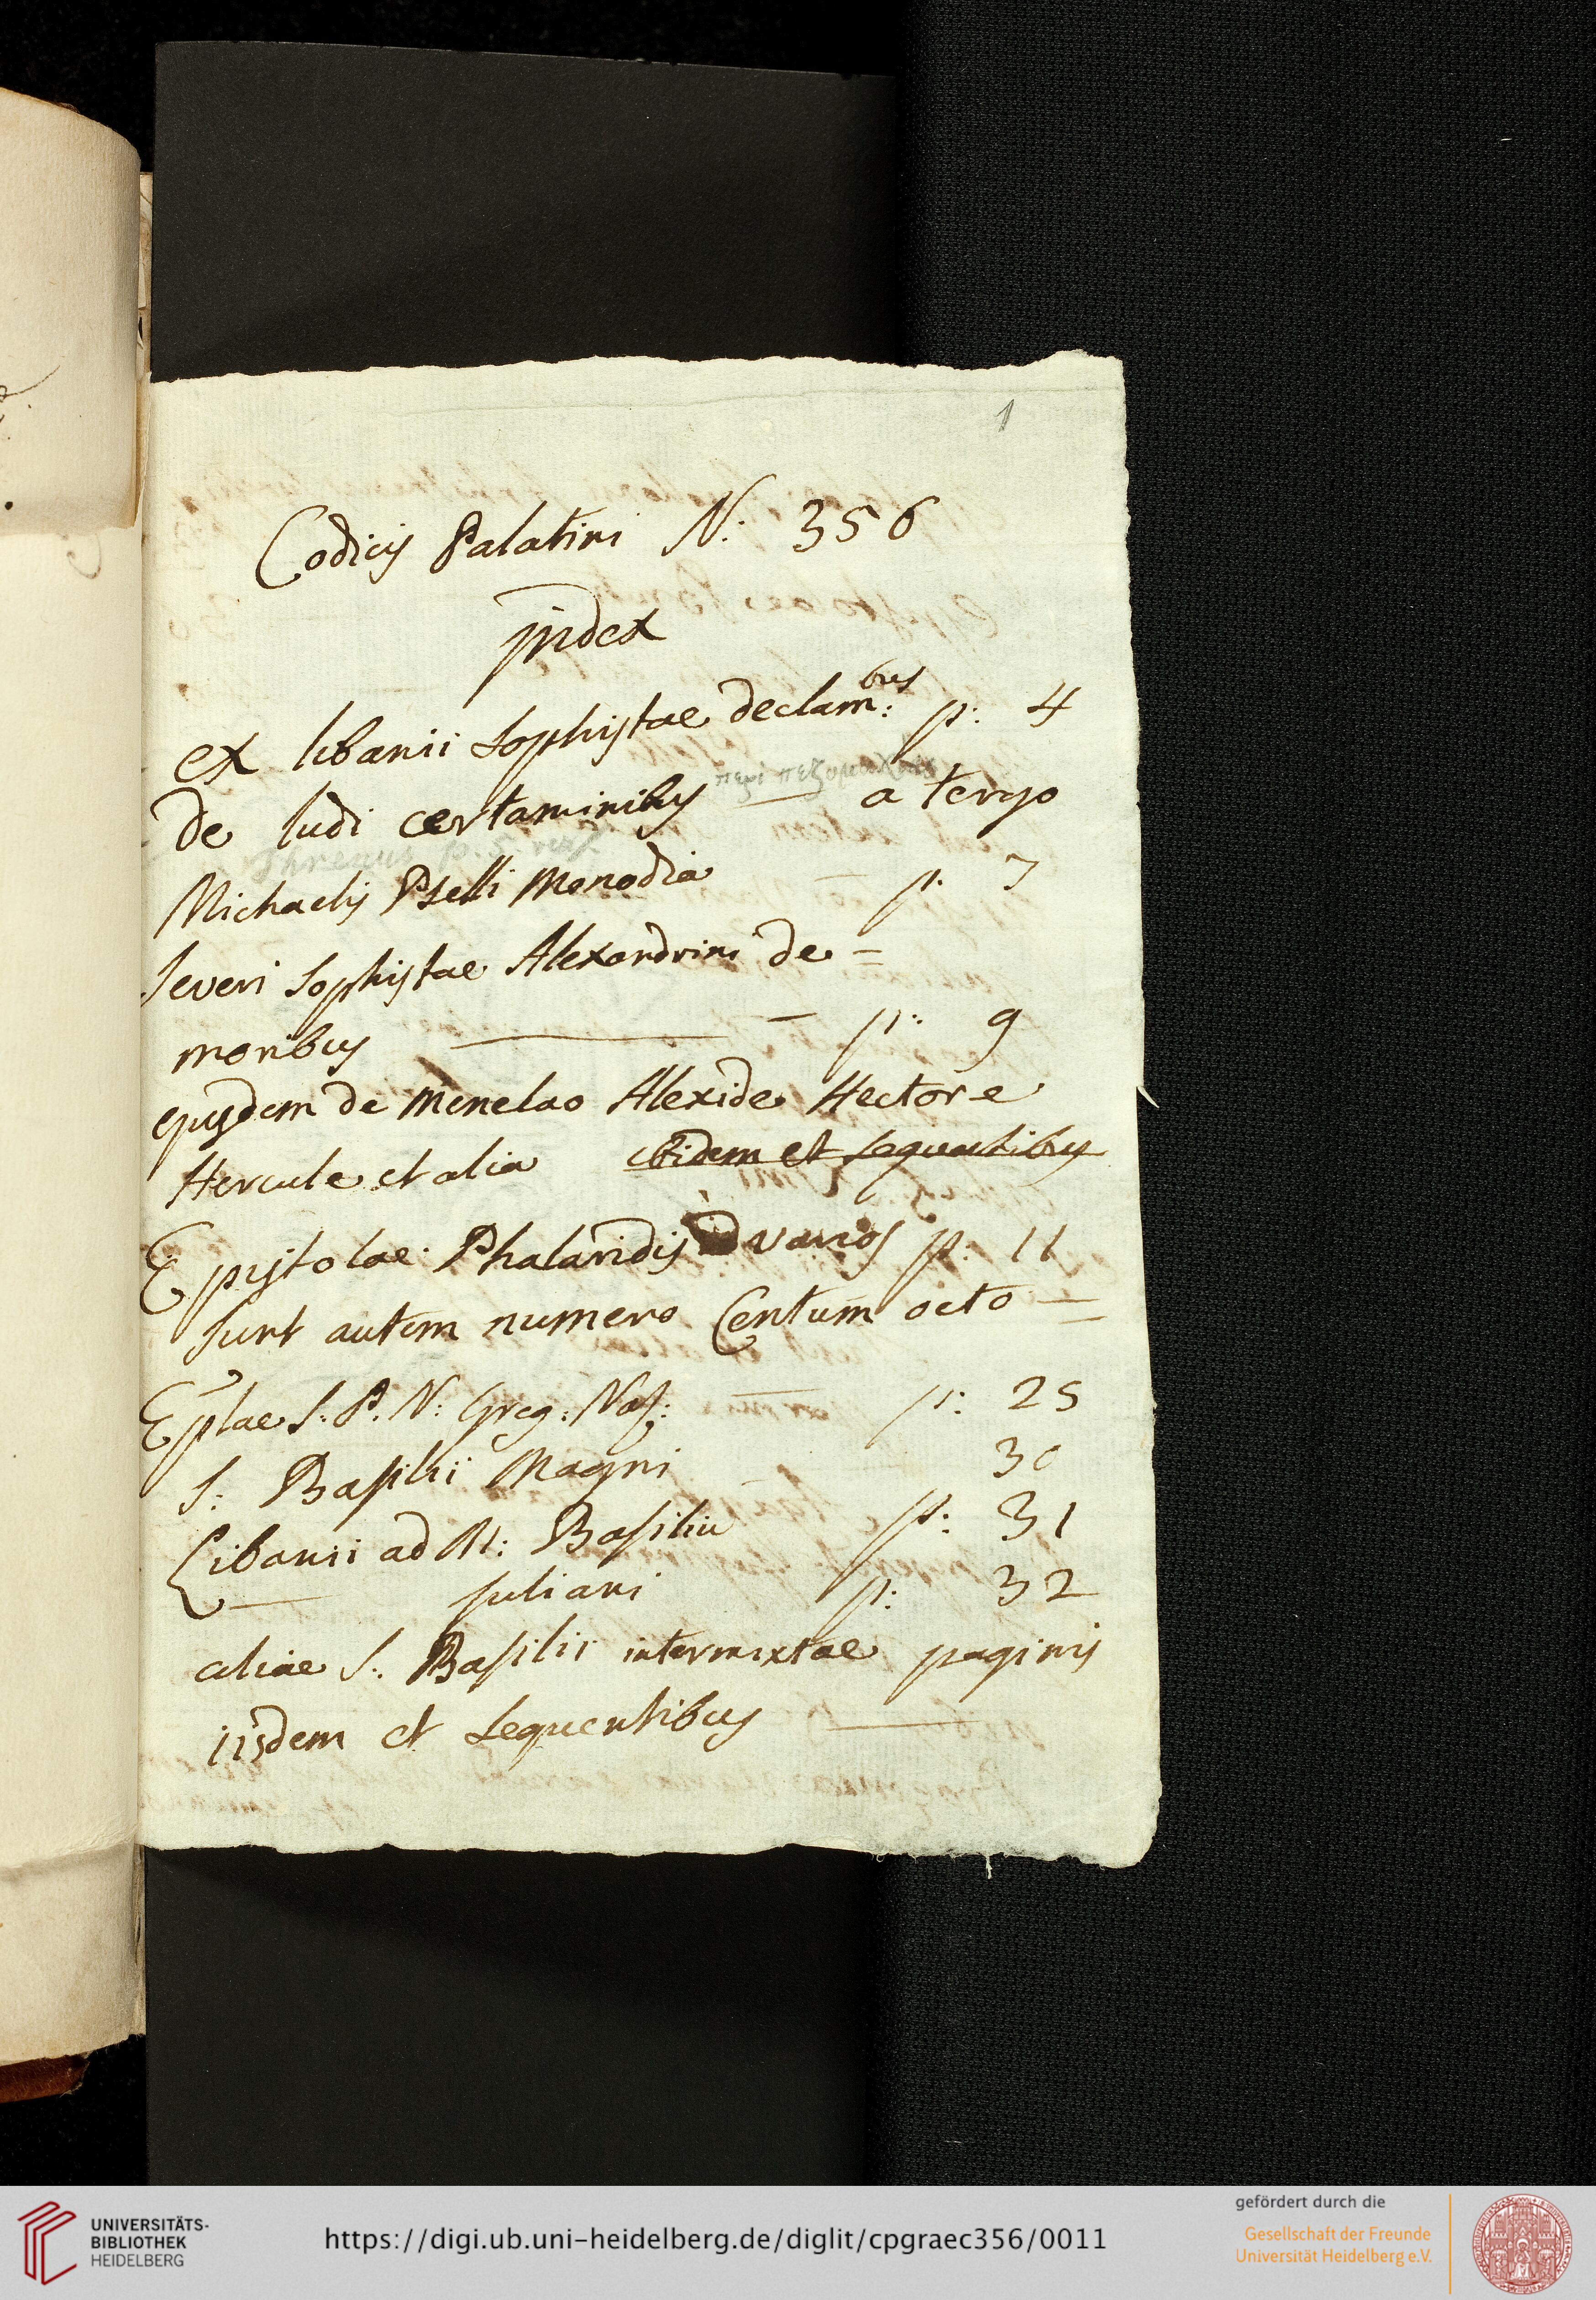 1
Codicis Palatini N: 356
Index
ex libanii Sophistae declam:bus p: 4
de ludi certaminibus περὶ — a tergo
Threnus p. 5. vers
Michaelis Pselli Monodia — p. 7
Severi Sophistae Alexandrini de =
moribus — p: 9
ejusdem de Menelao Alexide Hectore
Hercule et alia ibidem et sequentibus
Epistolae Phalaridis ad varios p: 11
sunt autem numero Centum octo =
Eplae S. P. N: Greg: Naz: — p: 25
S: Basilii Magni — 30
Libanii ad M: Basiliū p: 31
— Juliani p: 32
aliae S. Basilii intermixtae paginis
iisdem et sequentibus —
UNIVERSITÄTS-
BIBLIOTHEK
HEIDELBERG
https://digi.ub.uni-heidelberg.de/diglit/cpgraec356/0011
gefördert durch die
Gesellschaft der Freunde
Universität Heidelberg e.V.